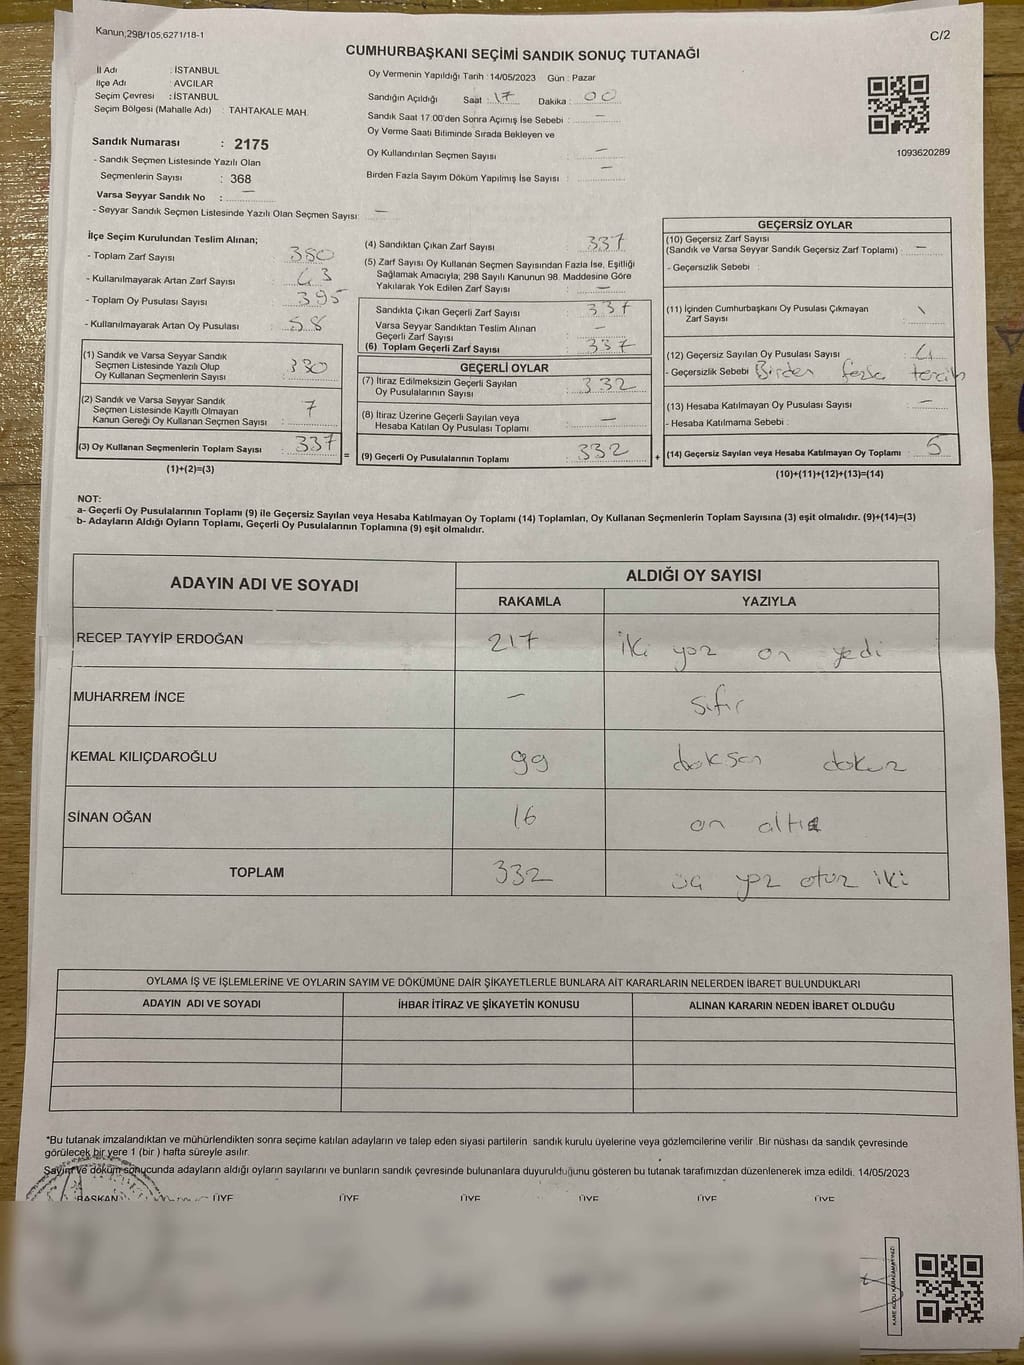 Kanun;298/105,6271/18-1
C/2
CUMHURBAŞKANI SEÇİMİ SANDIK SONUÇ TUTANAĞI
İl Adı : İSTANBUL
İlçe Adı : AVCILAR
Seçim Çevresi : İSTANBUL
Seçim Bölgesi (Mahalle Adı) : TAHTAKALE MAH.
Sandık Numarası : 2175
- Sandık Seçmen Listesinde Yazılı Olan
Seçmenlerin Sayısı : 368
Varsa Seyyar Sandık No : —
- Seyyar Sandık Seçmen Listesinde Yazılı Olan Seçmen Sayısı: —
Oy Vermenin Yapıldığı Tarih : 14/05/2023 Gün : Pazar
Sandığın Açıldığı Saat : 17 Dakika : 00
Sandık Saat 17:00'den Sonra Açımış İse Sebebi : —
Oy Verme Saati Bitiminde Sırada Bekleyen ve
Oy Kullandırılan Seçmen Sayısı : —
Birden Fazla Sayım Döküm Yapılmış İse Sayısı : —
1093620289
İlçe Seçim Kurulundan Teslim Alınan;
- Toplam Zarf Sayısı : 380
- Kullanılmayarak Artan Zarf Sayısı : 43
- Toplam Oy Pusulası Sayısı : 395
- Kullanılmayarak Artan Oy Pusulası : 58
(1) Sandık ve Varsa Seyyar Sandık
Seçmen Listesinde Yazılı Olup
Oy Kullanan Seçmenlerin Sayısı : 330
(2) Sandık ve Varsa Seyyar Sandık
Seçmen Listesinde Kayıtlı Olmayan
Kanun Gereği Oy Kullanan Seçmen Sayısı : 7
(3) Oy Kullanan Seçmenlerin Toplam Sayısı : 337
(1)+(2)=(3)
=
(4) Sandıktan Çıkan Zarf Sayısı : 337
(5) Zarf Sayısı Oy Kullanan Seçmen Sayısından Fazla İse, Eşitliği
Sağlamak Amacıyla; 298 Sayılı Kanunun 98. Maddesine Göre
Yakılarak Yok Edilen Zarf Sayısı : —
Sandıkta Çıkan Geçerli Zarf Sayısı : 337
Varsa Seyyar Sandıktan Teslim Alınan
Geçerli Zarf Sayısı : —
(6) Toplam Geçerli Zarf Sayısı : 337
GEÇERLİ OYLAR
(7) İtiraz Edilmeksizin Geçerli Sayılan
Oy Pusulalarının Sayısı : 332
(8) İtiraz Üzerine Geçerli Sayılan veya
Hesaba Katılan Oy Pusulası Toplamı : —
(9) Geçerli Oy Pusulalarının Toplamı : 332
+
GEÇERSİZ OYLAR
(10) Geçersiz Zarf Sayısı
(Sandık ve Varsa Seyyar Sandık Geçersiz Zarf Toplamı) : —
- Geçersizlik Sebebi :
(11) İçinden Cumhurbaşkanı Oy Pusulası Çıkmayan
Zarf Sayısı : \
(12) Geçersiz Sayılan Oy Pusulası Sayısı : 4
- Geçersizlik Sebebi Birden fazla tercih
(13) Hesaba Katılmayan Oy Pusulası Sayısı : —
- Hesaba Katılmama Sebebi :
(14) Geçersiz Sayılan veya Hesaba Katılmayan Oy Toplamı : 5
(10)+(11)+(12)+(13)=(14)
NOT:
a- Geçerli Oy Pusulalarının Toplamı (9) ile Geçersiz Sayılan veya Hesaba Katılmayan Oy Toplamı (14) Toplamları, Oy Kullanan Seçmenlerin Toplam Sayısına (3) eşit olmalıdır. (9)+(14)=(3)
b- Adayların Aldığı Oyların Toplamı, Geçerli Oy Pusulalarının Toplamına (9) eşit olmalıdır.
ADAYIN ADI VE SOYADI
ALDIĞI OY SAYISI
RAKAMLA YAZIYLA
RECEP TAYYİP ERDOĞAN 217 iki yüz on yedi
MUHARREM İNCE — sıfır
KEMAL KILIÇDAROĞLU 99 doksan dokuz
SİNAN OĞAN 16 on altı
TOPLAM 332 üç yüz otuz iki
OYLAMA İŞ VE İŞLEMLERİNE VE OYLARIN SAYIM VE DÖKÜMÜNE DAİR ŞİKAYETLERLE BUNLARA AİT KARARLARIN NELERDEN İBARET BULUNDUKLARI
ADAYIN ADI VE SOYADI İHBAR İTİRAZ VE ŞİKAYETİN KONUSU ALINAN KARARIN NEDEN İBARET OLDUĞU
*Bu tutanak imzalandıktan ve mühürlendikten sonra seçime katılan adayların ve talep eden siyasi partilerin sandık kurulu üyelerine veya gözlemcilerine verilir .Bir nüshası da sandık çevresinde
görülecek bir yere 1 (bir ) hafta süreyle asılır.
Sayım ve döküm sonucunda adayların aldığı oyların sayılarını ve bunların sandık çevresinde bulunanlara duyurulduğunu gösteren bu tutanak tarafımızdan düzenlenerek imza edildi. 14/05/2023
BAŞKAN ÜYE ÜYE ÜYE ÜYE ÜYE ÜYE